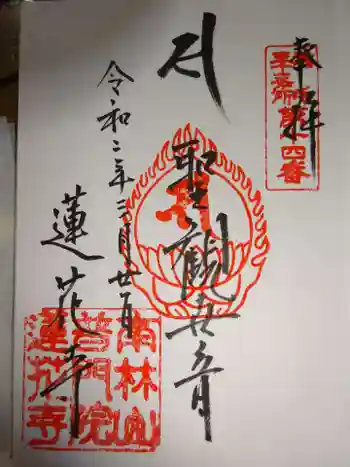 奉拝
聖観世音
令和二年二月廿一日
蓮花寺
南林山
普門院
蓮花寺